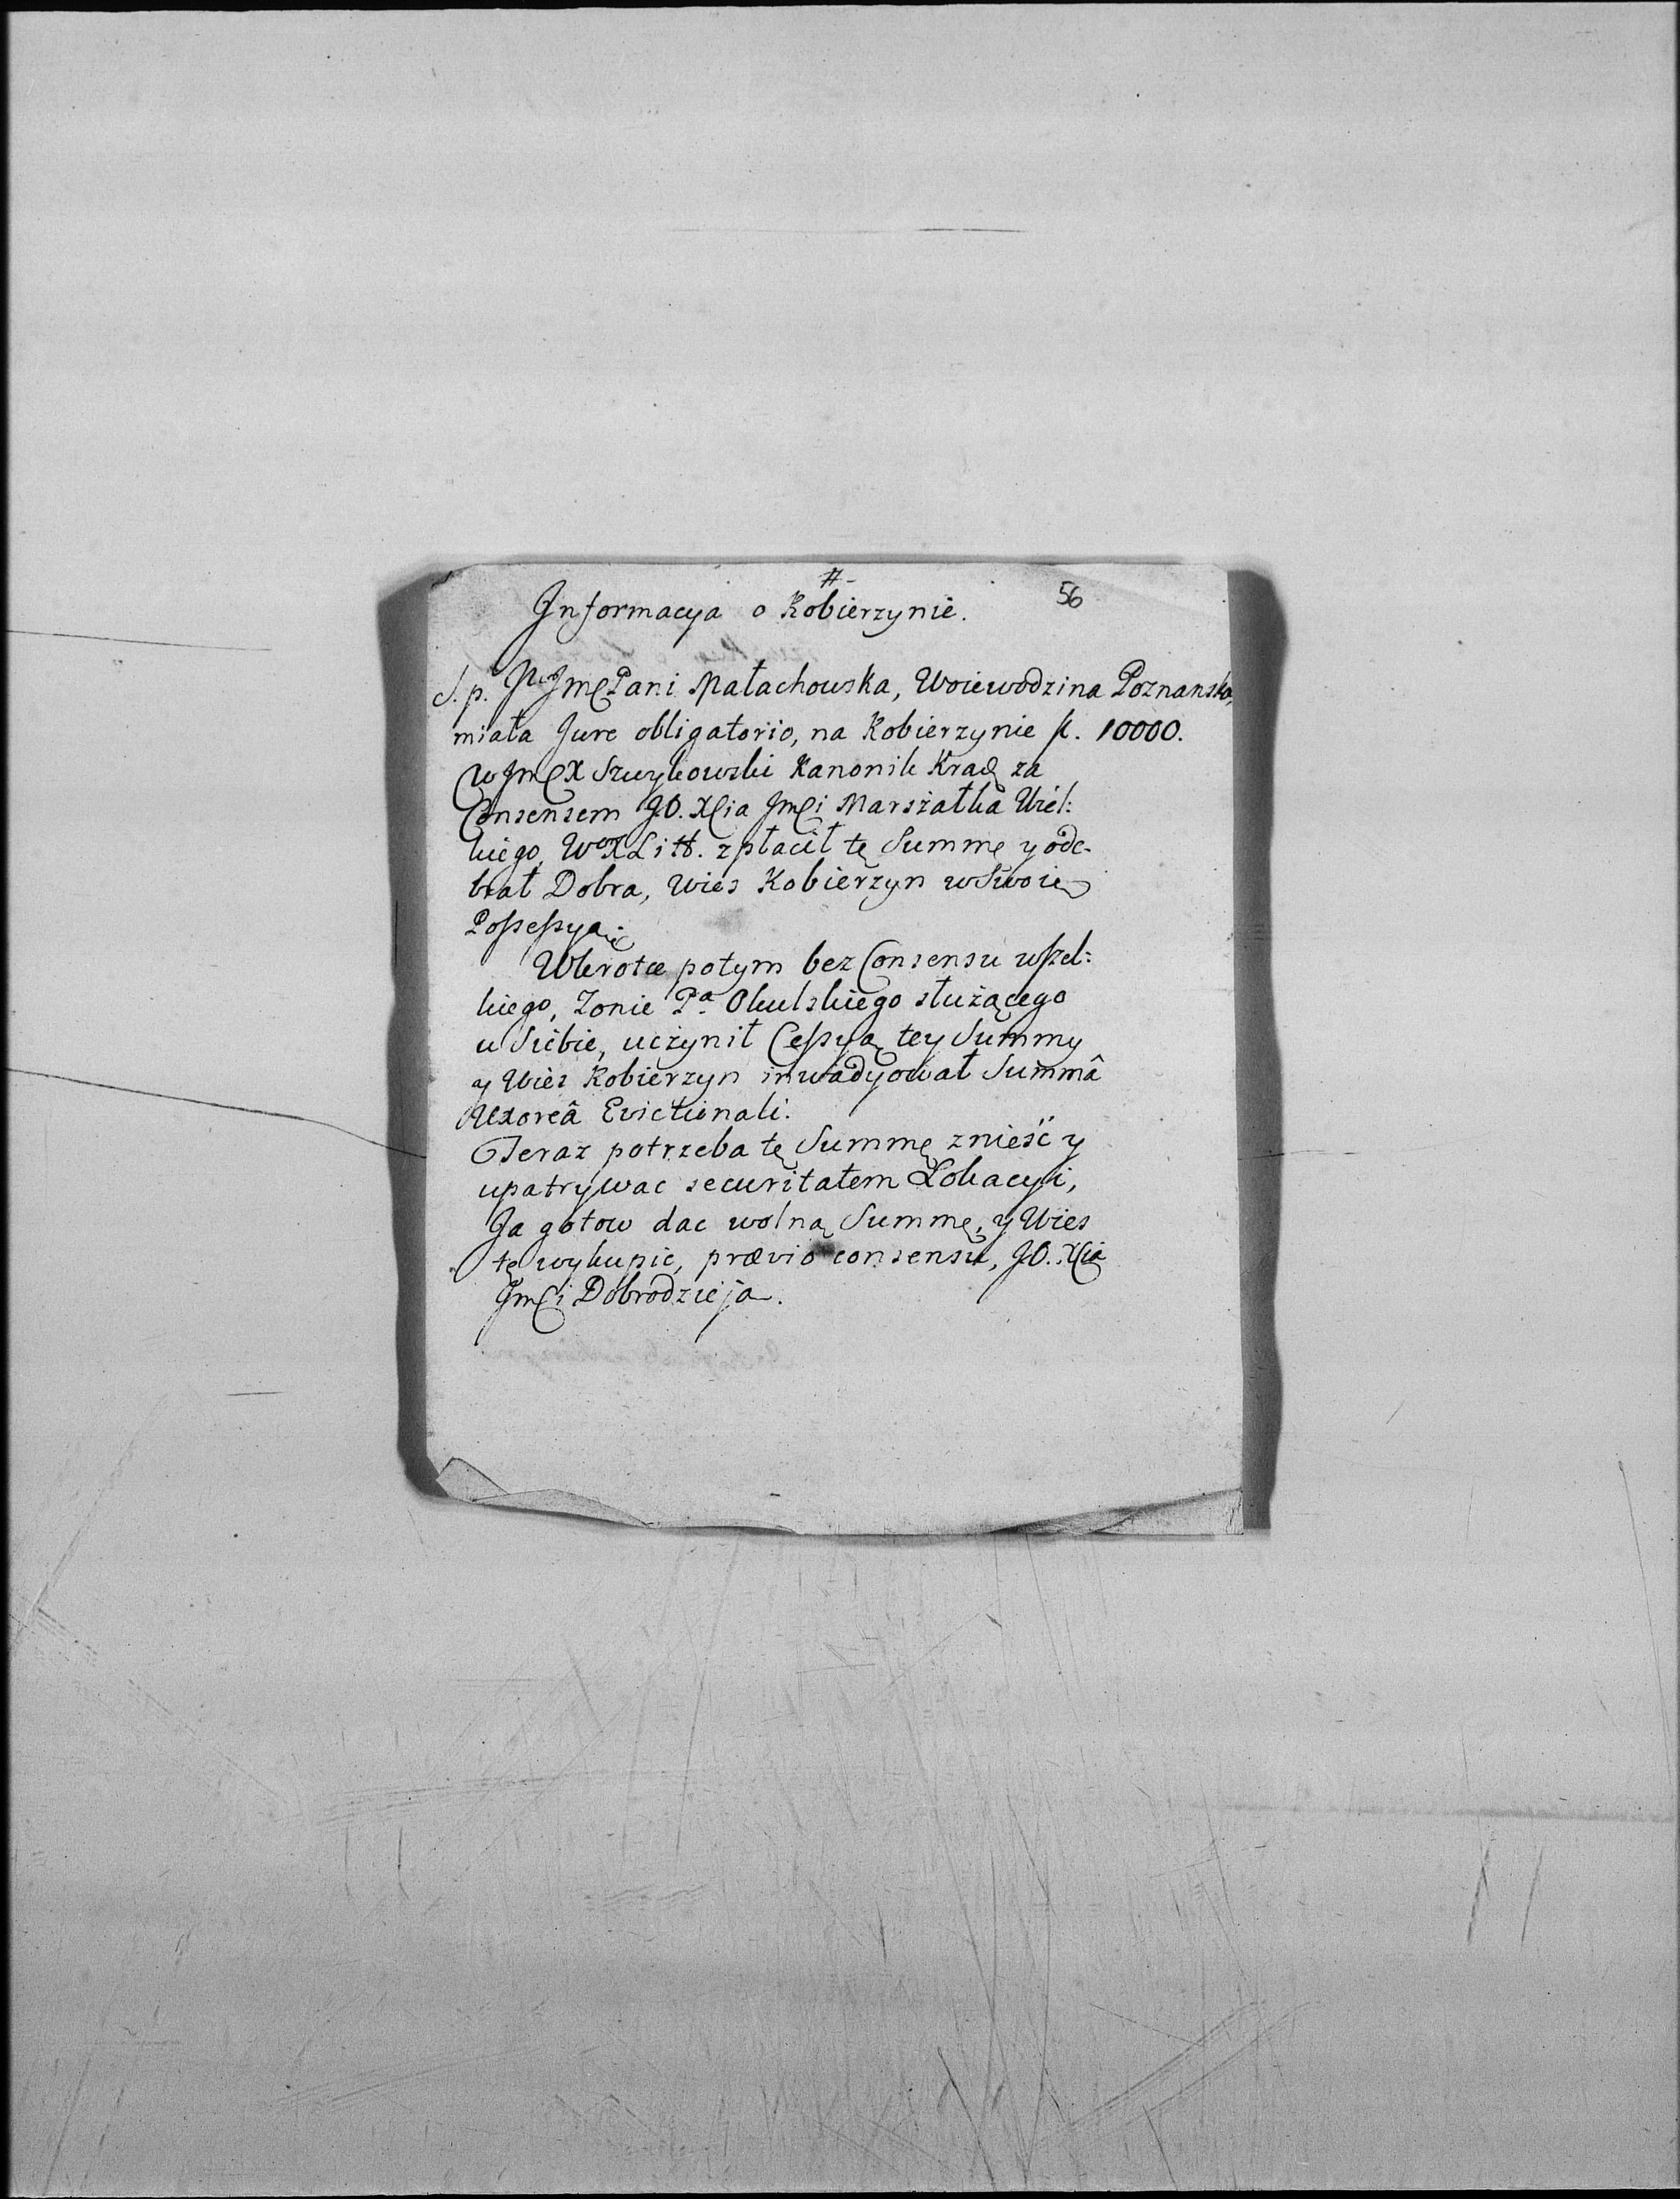 #-
56
Informacya o Kobierzynie.
S. p. Jmć Pani Małachowska, Woiewodzina Poznanska,
miała Jure obligatorio, na Kobierzynie fl. 10000.
W Jmć X Szwykowski Kanonik Krad za
Consensem JO. Xcia Jmci Marszałka Wiel:
kiego, W X Litt. zpłacił tę Summę y ode-
brał Dobra, Wies Kobierzyn w Swoię
Possessyą.
Wkrotce potym bez Consensu wszel:
kiego, Zonie Pa Okulskiego służącego
u Siebie, uczynił Cessyą tey Summy
y Wies Kobierzyn inwadyował Summâ
Uxoreâ Evictionali.
Teraz potrzeba tę Summę znieść y
upatrywac securitatem Lokacyi,
Ja gotow dac wolną Summę, y Wies
tę wykupic, prævio consensu, JO. Xcia
Jmci Dobrodzieja.